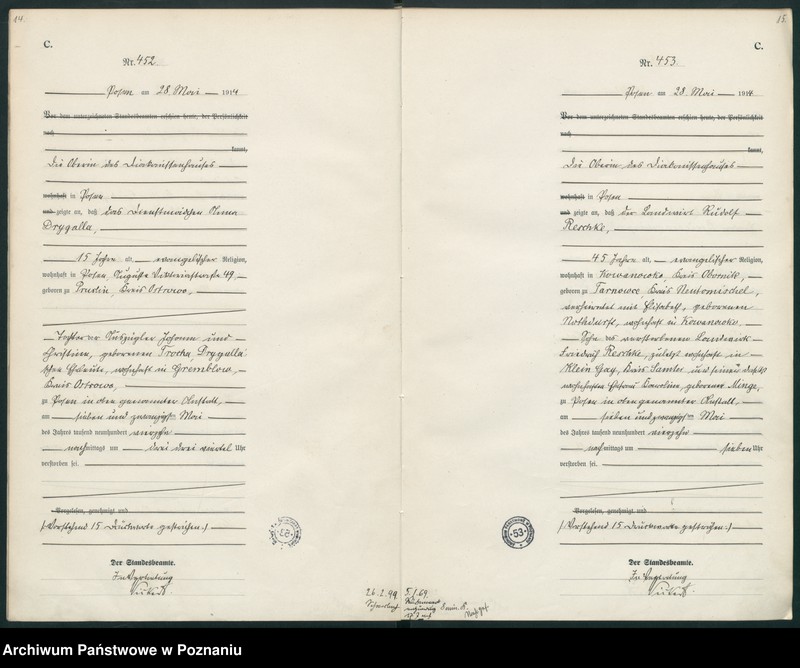 14.
C.
Nr. 452.
Posen am 28. Mai 1914
Vor dem unterzeichneten Standesbeamten erschien heute, der Persönlichkeit
nach
kannt,
die Oberin des Diakonissenhauses
wohnhaft in Posen
und zeigte an, daß das Dienstmädchen Anna
Drygalla,
15 Jahre alt, evangelischer Religion,
wohnhaft in Posen, Auguste Viktoriastraße 49,
geboren zu Kreis Ostrowo,
Tochter der Auszügler Johann und
Christiane, geborenen Trocha, Drygalla
schen Eheleute, wohnhaft in Gremblow,
Kreis Ostrowo,
zu Posen in oben genannter Anstalt,
am sieben und zwanzigsten Mai
des Jahres tausend neunhundert vierzehn
nachmittags um drei drei viertel Uhr
verstorben sei.
Vorgelesen, genehmigt und
(Vorstehend 15 Druckworte gestrichen.)
Der Standesbeamte.
In Vertretung
15.
C.
Nr. 453.
Posen am 28. Mai 1914
Vor dem unterzeichneten Standesbeamten erschien heute, der Persönlichkeit
nach
kannt,
die Oberin des Diakonissenhauses
wohnhaft in Posen
und zeigte an, daß der Landwirt Rudolf
Reschke,
45 Jahre alt, evangelischer Religion,
wohnhaft in Kowanowko, Kreis Obornik,
geboren zu Tarnowce, Kreis Neutomischel,
verheiratet mit Elisabeth, geborenen
Nothdurft, wohnhaft in Kowanowko,
Sohn des verstorbenen Landwirt
Friedrich Reschke, zuletzt wohnhaft in
Klein Gay, Kreis Samter und seiner
wohnhaften Ehefrau Karoline, geborenen Minge,
zu Posen in oben genannter Anstalt,
am sieben und zwanzigsten Mai
des Jahres tausend neunhundert vierzehn
nachmittags um sieben Uhr
verstorben sei.
Vorgelesen, genehmigt und
(Vorstehend 15 Druckworte gestrichen.)
Der Standesbeamte.
In Vertretung
53
26.2.99
5/1.69.
Archiwum Państwowe w Poznaniu